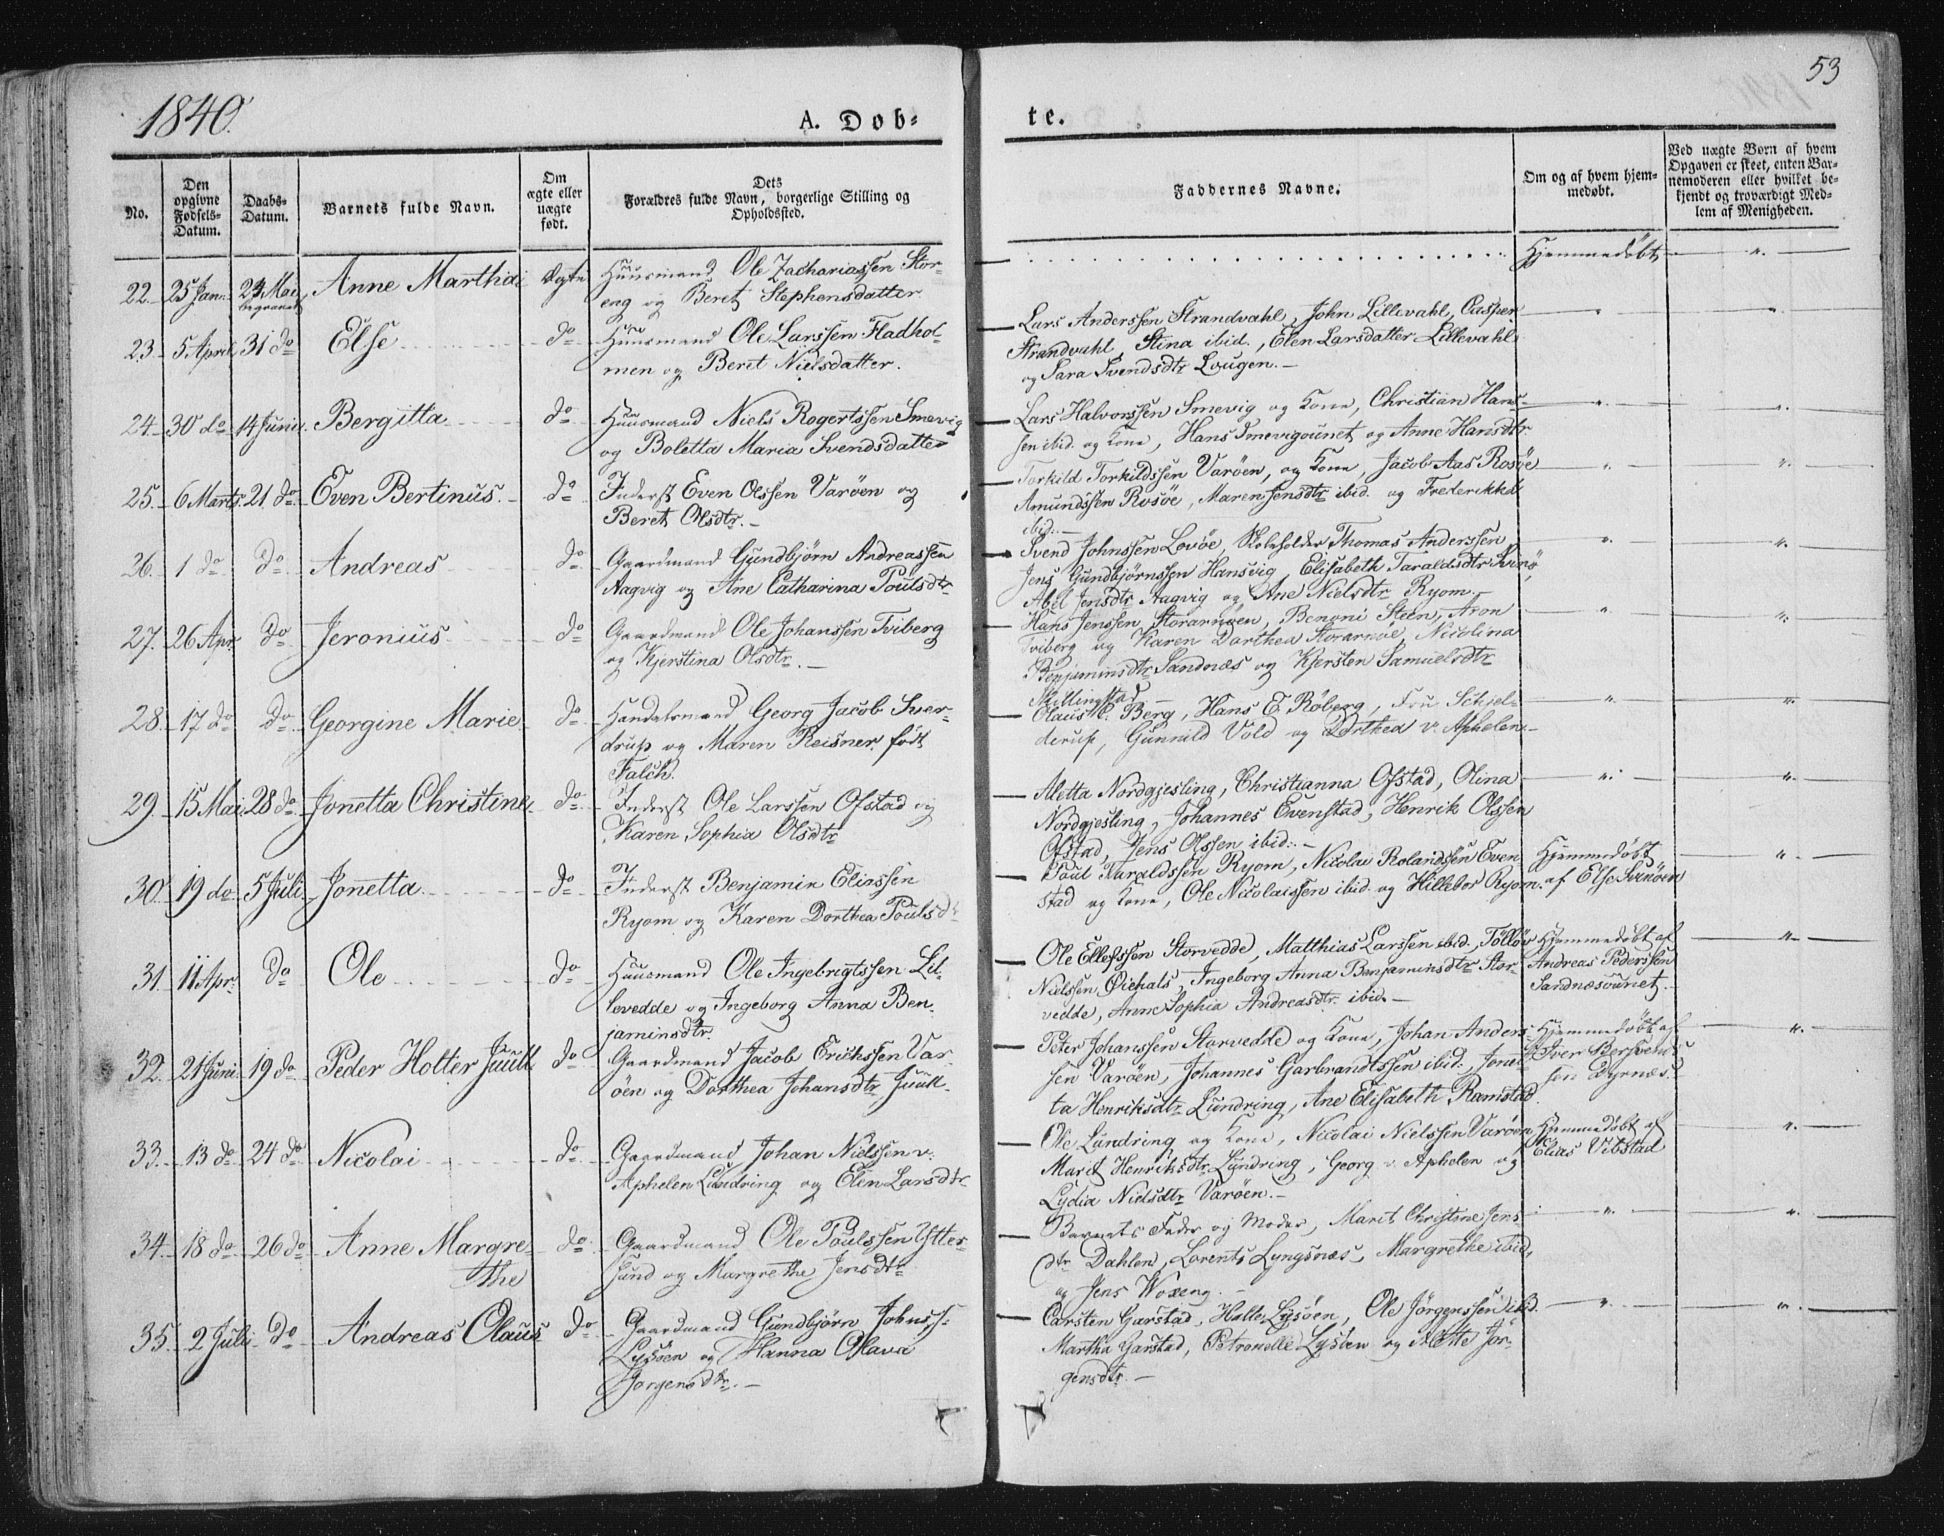 1840.
A. Døb-
te.
53
No.
Den opgivne Fødsels-Datum.
Daabs-Datum.
Barnets fulde Navn.
Om ægte eller uægte født.
Dets Forældres fulde Navn, borgerlige Stilling og Opholdssted.
Faddernes Navne.
Om og af hvem hjem-medøbt.
Ved uægte Børn af hvem
Opgaven er skeet, enten Bar-
nemoderen eller hvilket be-
kjendt og troværdigt Med-
lem af Menigheden.
22. 25 Jan. 24 Mai begravet Anne Martha Ægte Huusmand Ole Zachariassen Stor-
eng og Beret Stephensdatter.
Hjemmedøbt
23. 5 April 31 do Else do Huusmand Ole Larssen Fladhol-
men og Beret Nielsdatter.
Lars Anderssen Strandvahl, John Lillevahl, Casper
Strandvahl, Stina ibid., Elen Larsdatter Lillevahl
og Sara Svendsdtr Lougen.
24. 30 do 14 Junii Bergitta do Huusmand Niels Rogertssen Smevig
og Boletta Maria Svendsdatter
Lars Halvorssen Smevig og Kone, Christian Hans-
sen ibid. og Kone, Hans Smevigvunet og Anne Hansdtr
25. 6 Marts 21 do Even Bertinus. do Inderst Even Olssen Varøen og
Beret Olsdtr.
Torkild Torkildssen Varøen, og Kone, Jacob Aas Rosøe
Amundssen Rosøe, Maren Jensdtr ibid. og Frederikka
ibid.
26. 1 do do Andreas do Gaardmand Gundbjørn Andreassen
Aagvig og Ane Catharina Poulsdtr
Svend Johnssen Lovøe, Skoleholder Thomas Anderssen
Jens Gundbjørnssen Hansvig, Elisabeth Taraldsdtr Svinø,
Abel Jensdtr Aagvig og Ane Nielsdtr Ryom.
27. 26 Apr. do Jeronius do Gaardmand Ole Johanssen Tviberg
og Kjerstina Olsdtr.
Hans Jenssen Storarnøen, Benoni Steen, Aron
Tviberg og Karen Dorthea Storarnøe, Nicolina
Benjaminsdtr Sandnæs og Kjersten Samuelsdtr
Skillingstad
28. 17 do do Georgine Marie do Handelsmand Georg Jacob Sver-
drup og Maren Reisner født
Falch.
Olaus P. Berg, Hans E. Røberg, Fru Schjel-
derup, Gunnild Vold og Dorthea v. Aphelen
29. 15 Mai 28 do Jonetta Christine do Inderst Ole Larssen Ofstad og
Karen Sophia Olsdtr
Aletta Nordgjesling, Christianna Ofstad, Olina
Nordgjesling, Johannes Evenstad, Henrik Olssen
Ofstad, Jens Olssen ibid.
30. 19 do 5 Juli Jonetta do Inderst Benjamin Eliassen
Ryom og Karen Dorthea Poulsdtr
Poul Taraldssen Ryom, Nicolai Rolandssen Even
stad og Kone, Ole Nicolaissen ibid. og Hillebor Ryom.
Hjemmedøbt
af Else Svinøen
31. 11 Apr. do Ole do Huusmand Ole Ingebrigtssen Lil-
levedde og Ingeborg Anna Ben-
jaminsdtr.
Ole Ellefssen Storvedde, Matthias Larssen ibid., Tølløv
Nielssen Øiehals, Ingeborg Anna Benjaminsdtr Stor-
vedde, Anne Sophia Andreasdtr. ibid.
Hjemmedøbt af
Andreas Pederssen
Sandnæsvunet.
32. 21 Juni 19 do Peder Holter Juul do Gaardmand Jacob Erichssen Var-
øen og Dorthea Johansdtr Juul.
Peter Johanssen Storvedde og Kone, Johan Anders-
sen Varøen, Johannes Garbrandtssen ibid., Jonet-
ta Henriksdtr Lundring, Ane Elisabeth Ramstad.
Hjemmedøbt af
Iver Bersvends-
sen Dyrnæs.
33. 13 do 24 do Nicolai do Gaardmand Johan Nielssen v.
Aphelen Lundring og Elen Larsdtr
Ole Lundring og Kone, Nicolai Nielssen Varøen,
Marit Henriksdtr Lundring, Georg v. Aphelen og
Lydia Nielsdtr Varøen.
Hjemmedøbt af
Elias Vibstad
34. 18 do 26 do Anne Margre-
the
do Gaardmand Ole Poulssen Ytter-
sund og Margrethe Jensdtr
Barnets Fader og Moder, Marit Christine Jens-
dtr Dahlen, Lorents Lyngsnæs, Margrethe ibid,
og Jens Woxeng.
35. 2 Juli do Andreas Olaus do Gaardmand Gundbjørn Johnss-
Lysøen og Hanna Olava
Jørgensdtr.
Carsten Garstad, Halle Lysøen, Ole Jørgenssen ibid.
Martha Garstad, Petronelle Lysøen og Alette Jør-
gensdtr.